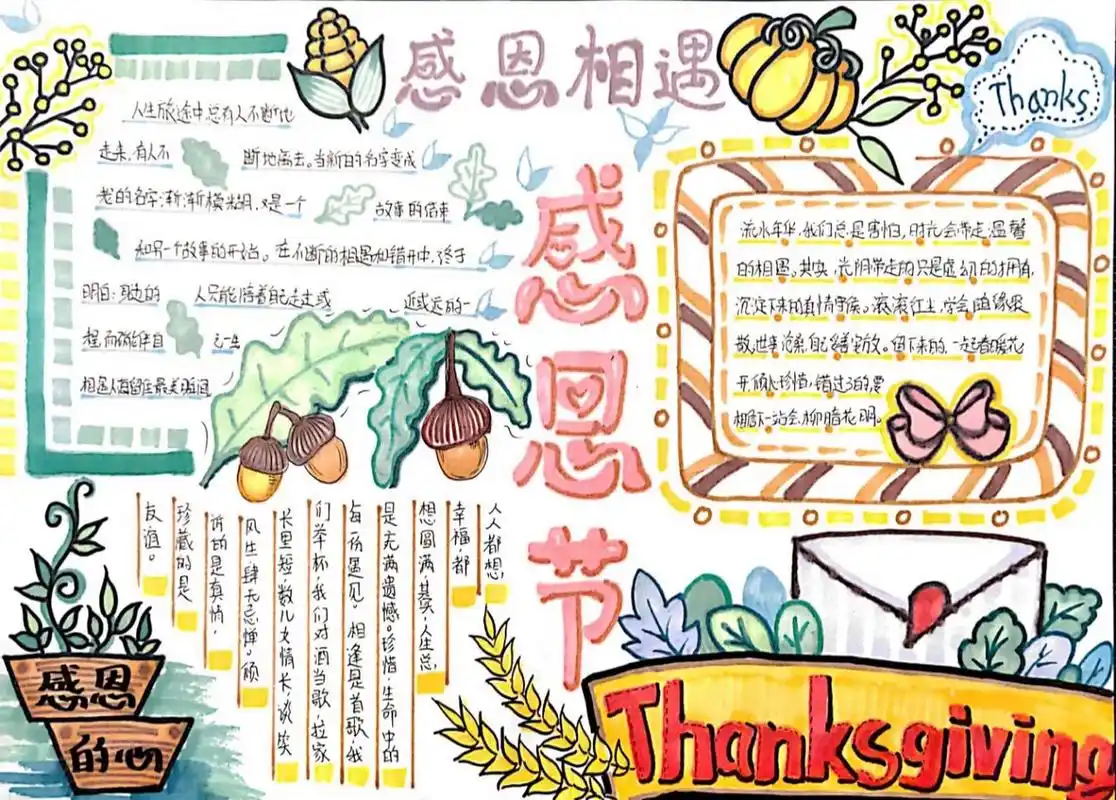 感恩相遇
Thanks
人生旅途中总有人不断地
走来,有人不断地离去。当新的名字变成
老的名字渐渐模糊,又是一个故事的结束
和另一个故事的开始。在不断的相遇和错开中,终于
明白:身边的人只能陪着自己走过或近或远的一
程,而不能伴自己一生
相遇
感恩节
流水年华,我们总是害怕,时光会带走温馨
的相遇。其实,光阴带走的只是虚幻的拥有,
沉淀下来的真情守候。滚滚红尘,学会随缘聚
散,世事沧桑,自己妥善安放。留下来的,一起看暖花
开,倾心珍惜,错过了的,要
相信下一站会柳暗花明。
人人都想
幸福,都
想圆满,其实,人生总
是充满遗憾。珍惜,生命中的
每一场遇见。相逢是首歌,我
们举杯,我们对酒当歌,拉家
长里短,数儿女情长,谈笑
风生,肆无忌惮。倾
诉的是真情,
珍藏的是
友谊。
感恩
的心
Thanksgiving